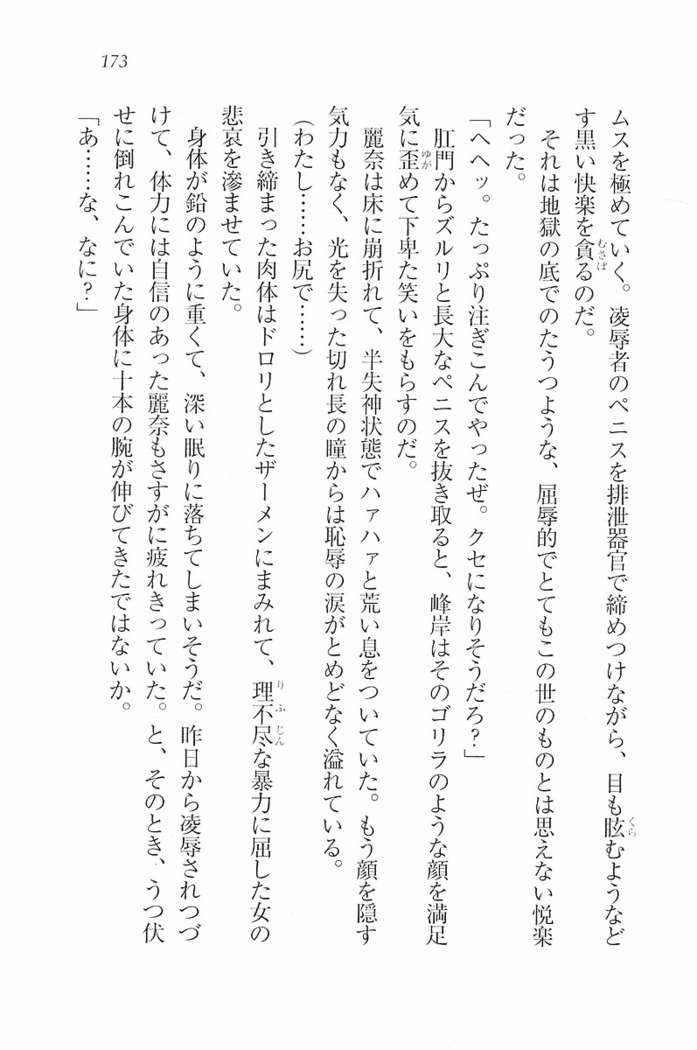 173
ムスを極めていく。凌辱者のペニスを排泄器官で締めつけながら、目も眩むようなど
す黒い快楽を貪るのだ。
それは地獄の底でのたうつような、屈辱的でとてもこの世のものとは思えない悦楽
だった。
「へヘッ。たっぷり注ぎこんでやったぜ。クセになりそうだろ？」
肛門からズルリと長大なペニスを抜き取ると、峰岸はそのゴリラのような顔を満足
気に歪めて下卑た笑いをもらすのだ。
麗奈は床に崩折れて、半失神状態でハァハァと荒い息をついていた。もう顔を隠す
気力もなく、光を失った切れ長の瞳からは恥辱の涙がとめどなく溢れている。
（わたし……お尻で……）
引き締まった肉体はドロリとしたザーメンにまみれて、理不尽な暴力に屈した女の
悲哀を滲ませていた。
身体が鉛のように重くて、深い眠りに落ちてしまいそうだ。昨日から凌辱されつづ
けて、体力には自信のあった麗奈もさすがに疲れきっていた。と、そのとき、うつ伏
せに倒れこんでいた身体に十本の腕が伸びてきたではないか。
「あ……な、なに？」